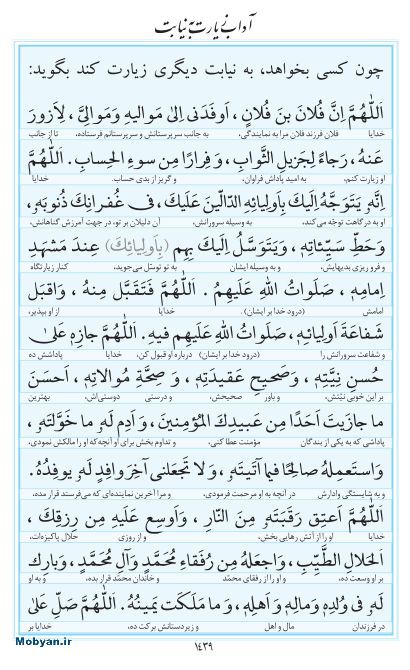 آداب زیارت به نیابت
چون کسی بخواهد، به نیابت دیگری زیارت کند بگوید:
اَللّٰهُمَّ اِنَّ فُلَانَ بنَ فُلَانٍ، اَوفَدَنی اِلیٰ مَوالیهِ وَمَوالِیَّ، لِاَزورَ
خدایا فلان فرزند فلان مرا به نمایندگی، به جانب سرپرستانش و سرپرستانم فرستاده، تا از جانب
عَنهُ، رَجاءً لِجَزیلِ الثَّوابِ، وَفِرارًا مِن سوءِ الحِسابِ. اَللّٰهُمَّ
او زیارت کنم، به امید پاداش فراوان، و گریز از بدی حساب. خدایا
اِنَّهٗ یَتَوَجَّهُ اِلَیكَ بِاَولِیائِهِ الدّالّینَ عَلَیكَ، فی غُفرانِكَ ذُنوبَهٗ،
او به درگاهت توجّه می‌کند، به وسیله سرورانش، آن دلیلان بر تو، در جهت آمرزش گناهانش،
وَحَطِّ سَیِّئاتِهٖ، وَیَتَوَسَّلُ اِلَیكَ بِهِم (بِاَولِیائِكَ) عِندَ مَشهَدِ
و فرو ریزی بدیهایش، و به وسیله ایشان به تو توسّل می‌جوید، کنار زیارتگاه
اِمامِهٖ، صَلَواتُ اللهِ عَلَیهِم. اَللّٰهُمَّ فَتَقَبَّل مِنهُ، وَاقبَل
امامش (درود خدا بر ایشان). خدایا از او بپذیر،
شَفاعَةَ اَولِیائِهٖ، صَلَواتُ اللهِ عَلَیهِم فیهِ. اَللّٰهُمَّ جازِهٖ عَلیٰ
و شفاعت سرورانش را (درود خدا بر ایشان) درباره او قبول کن. خدایا پاداشش ده
حُسنِ نِیَّتِهٖ، وَصَحیحِ عَقیدَتِهٖ، وَصِحَّةِ مُوالاتِهٖ، اَحسَنَ
بر این خوبی نیّتش، و باور صحیحش، و درستی دوستی‌اش، بهترین
ما جازَیتَ اَحَدًا مِن عَبیدِكَ المُؤمِنینَ، وَاَدِم لَهٗ ما خَوَّلتَهٗ،
پاداشی که به یکی از بندگان مؤمنت عطا کنی، و تداوم بخش برای او آنچه که او را مالکش نمودی،
وَاستَعمِلهُ صالِحًا فیما آتَیتَهٗ، وَلا تَجعَلنی آخِرَ وافِدٍ لَهٗ یوفِدُهٗ.
و به شایستگی وادارش در آنچه به او مرحمت فرمودی، و مرا آخرین نماینده‌ای که می‌فرستد قرار مده،
اَللّٰهُمَّ اَعتِق رَقَبَتَهٗ مِنَ النّارِ، وَاَوسِع عَلَیهِ مِن رِزقِكَ،
خدایا او را از آتش رهایی بخش، و از روزی حلال پاکیزه‌ات،
الحَلالِ الطَّیِّبِ، وَاجعَلهُ مِن رُفَقاءِ مُحَمَّدٍ وَآلِ مُحَمَّدٍ، وَبارِك
بر او وسعت ده، و او را از رفقای محمّد و خاندان محمّد قرار بده، و به او
لَهٗ فی وُلدِهٖ وَمالِهٖ وَاَهلِهٖ، وَما مَلَكَت یَمینُهٗ. اَللّٰهُمَّ صَلِّ عَلیٰ
در فرزندان مال و اهل و زیردستانش برکت ده، خدایا بر
١٤٣٩
Mobyan.ir